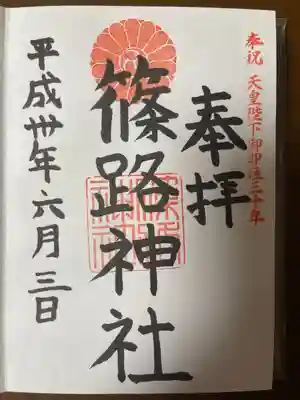 奉祝 天皇陛下御即位三十年
奉拝
篠路神社
平成卅年六月三日